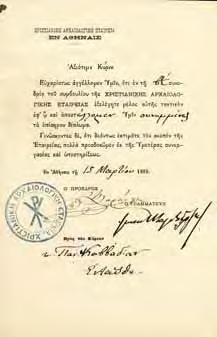 ΧΡΙΣΤΙΑΝΙΚΗ ΑΡΧΑΙΟΛΟΓΙΚΗ ΕΤΑΙΡΕΙΑ
ΕΝ ΑΘΗΝΑΙΣ
Ἀξιότιμε Κύριε
Εὐχαρίστως ἀγγέλλομεν Ὑμῖν, ὅτι ἐν τῇ
δρίᾳ τοῦ συμβουλίου τῆς ΧΡΙΣΤΙΑΝΙΚΗΣ ΑΡΧΑΙΟΛΟ-
ΓΙΚΗΣ ΕΤΑΙΡΕΙΑΣ ἐξελέγητε μέλος αὐτῆς τακτικὸν
ἐφ' ᾧ καὶ Ὑμῖν συνημμένως
τὸ ἐπίσημον δίπλωμα.
Γινώσκοντες δέ, ὅτι δεόντως ἐκτιμᾶτε τὸν σκοπὸν τῆς
Ἑταιρείας, πολλὰ προσδοκῶμεν ἐκ τῆς Ὑμετέρας συνερ-
γασίας καὶ ὑποστηρίξεως.
Ἐν Ἀθήναις τῇ 15 Μαρτίου
Ο ΠΡΟΕΔΡΟΣ
Ο ΓΡΑΜΜΑΤΕΥΣ
ΧΡΙΣΤΙΑΝΙΚΗ ΑΡΧΑΙΟΛΟΓΙΚΗ ΕΤΑΙΡΕΙΑ
Πρὸς τὸν Κύριον
Παν. Καββαδίαν
Ἐνταῦθα